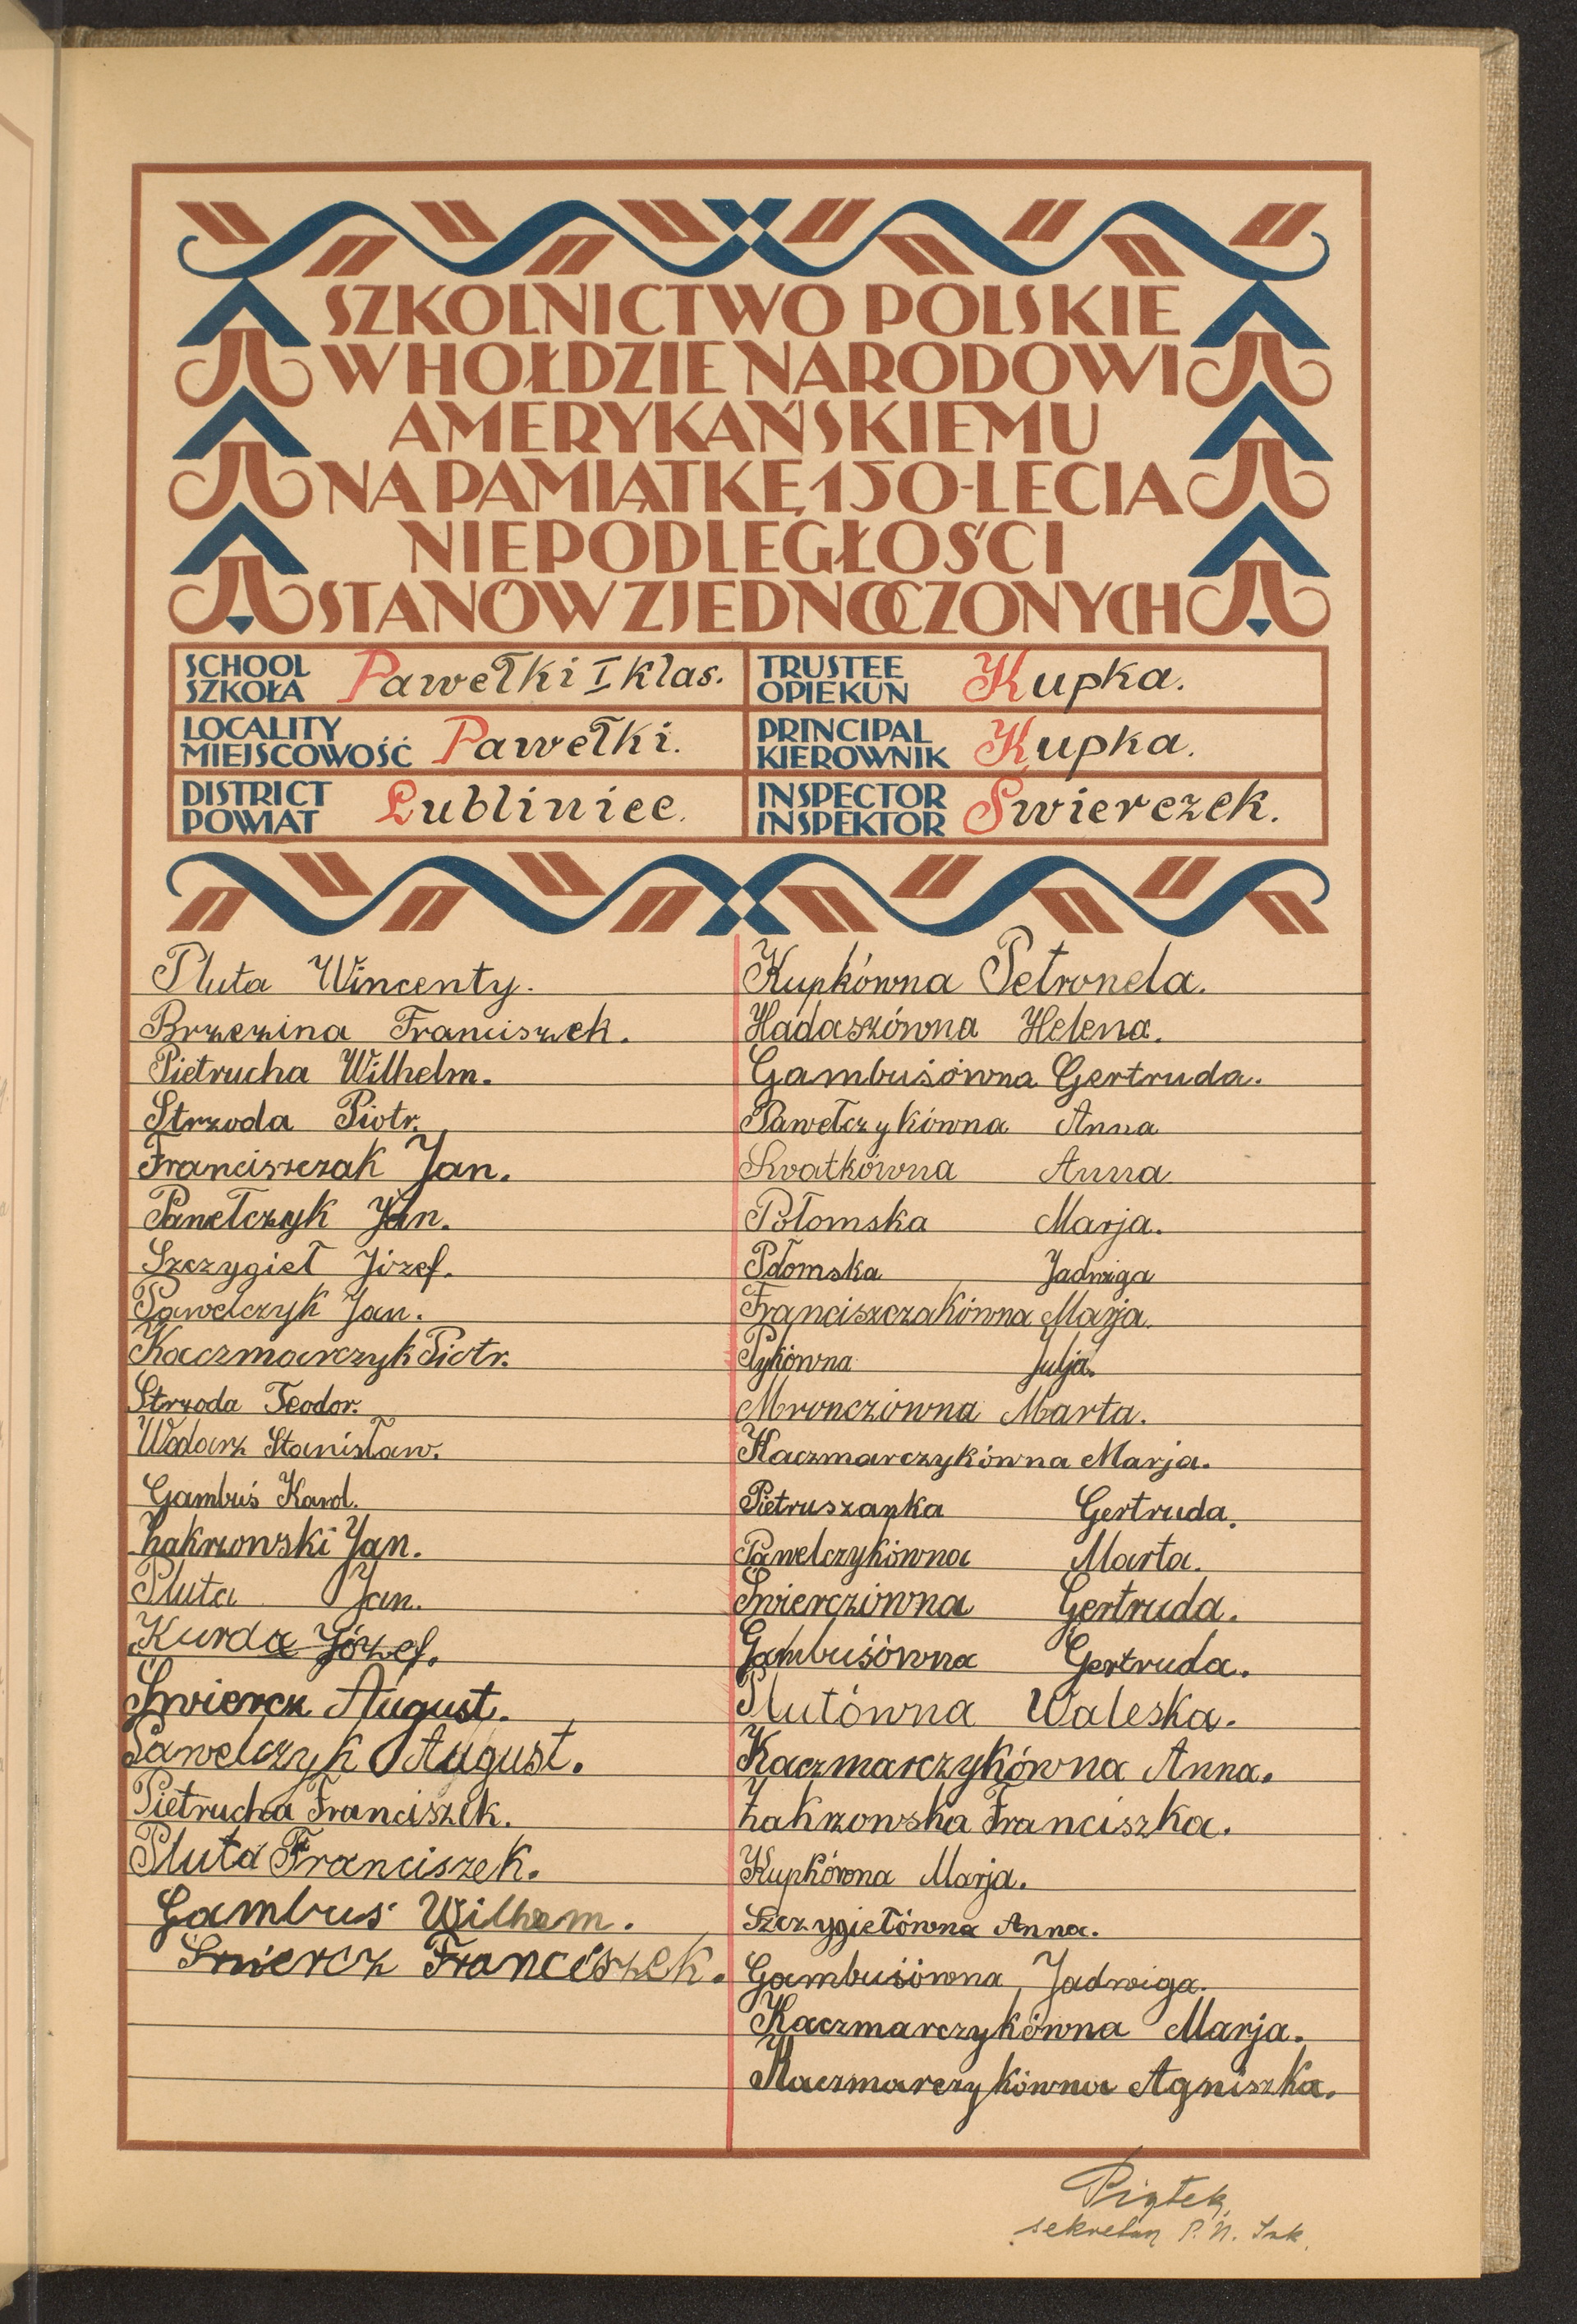 SZKOLNICTWO POLSKIE
W HOŁDZIE NARODOWI
AMERYKAŃSKIEMU
NA PAMIĄTKĘ 150-LECIA
NIEPODLEGŁOŚCI
STANÓW ZJEDNOCZONYCH
SCHOOL
SZKOŁA
Pawełki I klas.
TRUSTEE
OPIEKUN
Kupka.
LOCALITY
MIEJSCOWOŚĆ
Pawełki.
PRINCIPAL
KIEROWNIK
Kupka.
DISTRICT
POWIAT
Lubliniec.
INSPECTOR
INSPEKTOR
Świerczek.
Pluta Wincenty.
Brzezina Franciszek.
Pietrucha Wilhelm.
Strzoda Piotr.
Franciszczak Jan.
Panełczyk Jan.
Szczygieł Józef.
Pawelczyk Jan.
Kaczmarczyk Piotr.
Strzoda Teodor.
Wodarz Stanisław.
Gambuś Karol.
Zakrzowski Jan.
Pluta Jan.
Kurda Józef.
Świercz August.
Pawelczyk August.
Pietrucha Franciszek.
Pluta Franciszek.
Gambuś Wilhem.
Świercz Franciszek.
Kupkówna Petronela.
Hadaszówna Helena.
Gambusiówna Gertruda.
Pawełczykówna Anna
Kwatkówna Anna
Połomska Marja.
Połomska Jadwiga
Franciszczakówna Marja.
Pykówna Julja.
Mronczówna Marta.
Kaczmarczykówna Marja.
Pietruszanka Gertruda.
Pawelczykówna Marta.
Świerczówna Gertruda.
Gambusiówna Gertruda.
Plutówna Waleska.
Kaczmarczykówna Anna.
Zakrzowska Franciszka.
Kupkówna Marja.
Szczygiełówna Anna.
Gambusiówna Jadwiga.
Kaczmarczykówna Marja.
Kaczmarczykówna Agniszka.
Piątek,
sekretarz P. N. Szk.